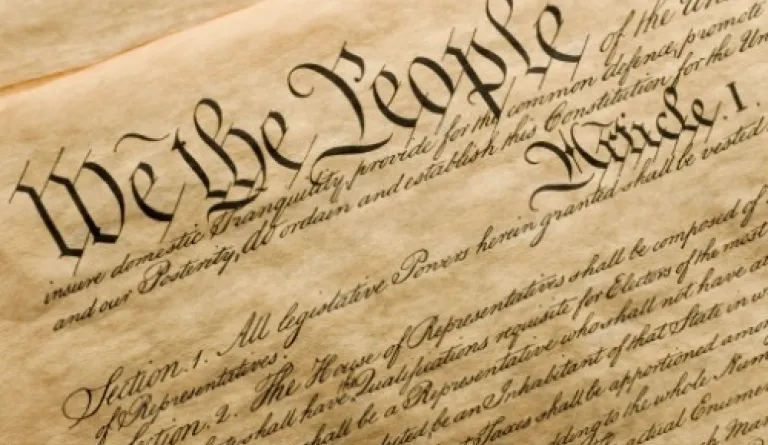 We the People of the Un
insure domestic Tranquility, provide for the common defence, promote
and our Posterity, do ordain and establish this Constitution for the Un
Article. I.
Section. 1. All legislative Powers herein granted shall be vested
of Representatives.
Section. 2. The House of Representatives shall be composed of
shall have Qualifications requisite for Electors of the most
shall be a Representative who shall not have at
be an Inhabitant of that State in w
Taxes shall be apportioned amon
to the whole Num
actual Enume